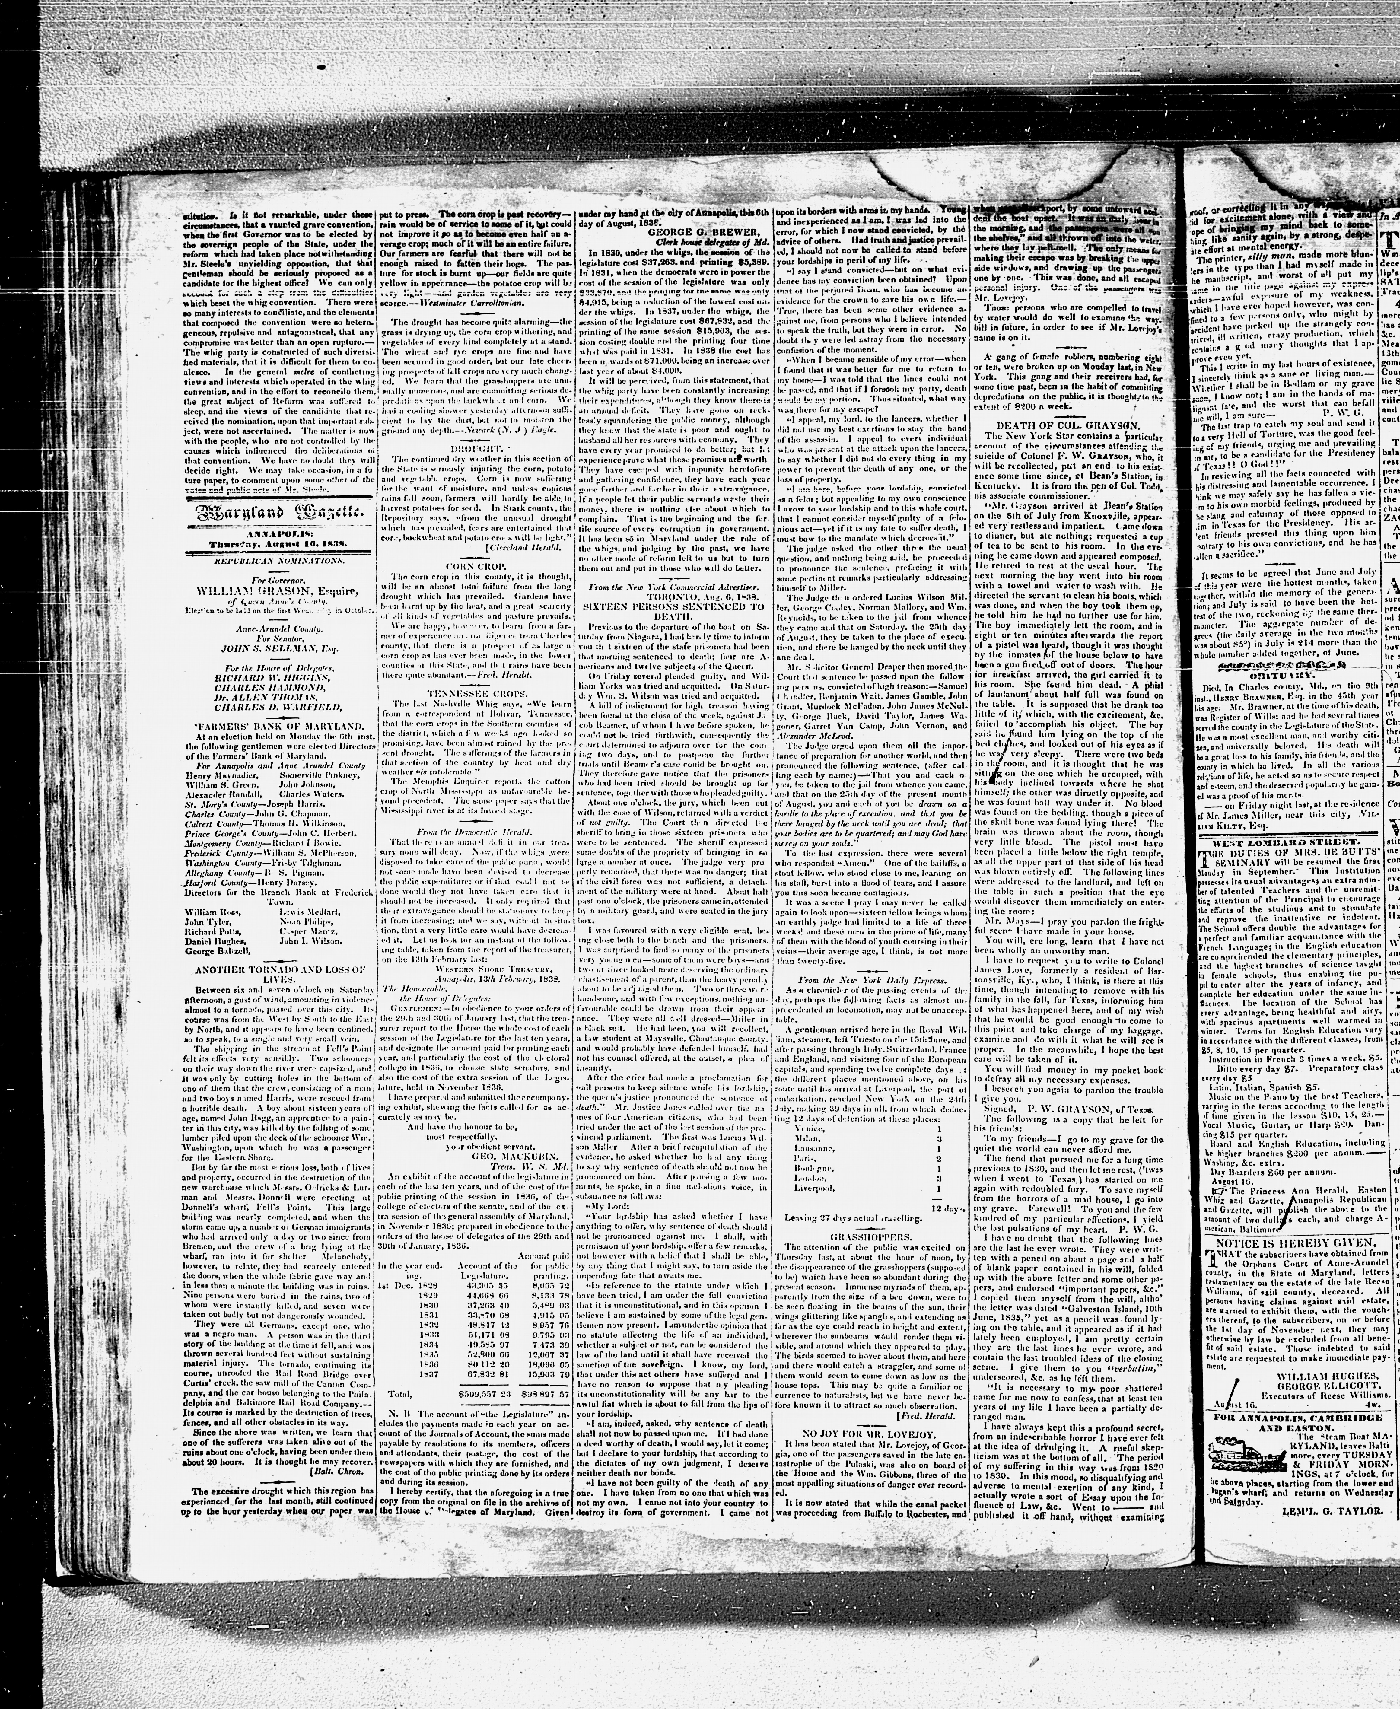 stitution. Is it not remarkable, under these
circumstances, that a vaunted grave convention,
when the first Governor was to be elected by
the sovereign people of the State, under the
reform which had taken place notwithstanding
Mr. Steele's unyielding opposition, that that
gentleman should be seriously proposed as a
candidate for the highest office? We can only
account for such a step from the difficulties
which beset the whig convention. There were
so many interests to conciliate, and the elements
that composed the convention were so hetero-
geneous, repulsive and antagonistical, that any
compromise was better than an open rupture.—
The whig party is constructed of such diversi-
fied materials, that it is difficult for them to co-
alesce. In the general melee of conflicting
views and interests which operated in the whig
convention, and in the effort to reconcile them,
the great subject of Reform was suffered to
sleep, and the views of the candidate that re-
ceived the nomination, upon that important sub-
ject, were not ascertained. The matter is now
with the people, who are not controlled by the
causes which influenced the deliberations of
that convention. We have no doubt they will
decide right. We may take occasion, in a fu-
ture paper, to comment upon some other of the
votes and public acts of Mr. Steele.
Maryland Gazette.
ANNAPOLIS:
Thursday, August 16, 1838.
REPUBLICAN NOMINATIONS.
For Governor,
WILLIAM GRASON, Esquire,
of Queen Ann's County.
Election to be held on the first Wednesday in October.
Anne-Arundel County.
For Senator,
JOHN S. SELLMAN, Esq.
For the House of Delegates,
RICHARD W. HIGGINS,
CHARLES HAMMOND,
Dr. ALLEN THOMAS,
CHARLES D. WARFIELD,
FARMERS' BANK OF MARYLAND.
At an election held on Monday the 6th inst.
the following gentlemen were elected Directors
of the Farmers' Bank of Maryland.
For Annapolis and Anne Arundel County
Henry Maynadier, Somerville Pinkney,
William S. Green, John Johnson,
Alexander Randall, Charles Waters.
St. Mary's County—Joseph Harris.
Charles County—John G. Chapman.
Calvert County—Thomas H. Wilkinson.
Prince George's County—John C. Herbert.
Montgomery County—Richard I Bowie.
Frederick County—William S. McPherson.
Washington County—Frisby Tilghman.
Alleghany County—B. S. Pigman.
Harford County—Henry Dorsey.
Directors for the Branch Bank at Frederick
Town.
William Ross, Lewis Medtart,
John Tyler, Noah Philips,
Richard Potts, Casper Mantz,
Daniel Hughes, John I. Wilson.
George Baltzell,
ANOTHER TORNADO AND LOSS OF
LIVES.
Between six and seven o'clock on Saturday
afternoon, a gust of wind, amounting in violence
almost to a tornado, passed over this city. Its
course was from the West by South to the East
by North, and it appears to have been confined,
so to speak, to a single and very small vein.
The shipping in the stream at Fell's Point
felt its effects very sensibly. Two schooners
on their way down the river were capsized, and
it was only by cutting holes in the bottom of
one of them that the crew, consisting of a man
and two boys named Harris, were rescued from
a horrible death. A boy about sixteen years of
age, named John Begg, an apprentice to a pain-
ter in this city, was killed by the falling of some
lumber piled upon the deck of the schooner Wm.
Washington, upon which he was a passenger
for the Eastern Shore.
But by far the most serious loss, both of lives
and property, occurred in the destruction of the
new warehouse which Messrs. Oelricks & Lur-
man and Messrs. Donnell were erecting at
Donnell's wharf, Fell's Point. This large
building was nearly completed, and when the
storm came up, a number of German immigrants
who had arrived only a day or two since from
Bremen, and the crew of a brig lying at the
wharf, ran into it for shelter. Melancholy,
however, to relate, they had scarcely entered
the doors, when the whole fabric gave way and
in less than a minute the building was in ruins.
Nine persons were buried in the ruins, two of
whom were instantly killed, and seven were
taken out badly but not dangerously wounded.
They were all Germans, except one, who
was a negro man. A person was in the third
story of the building at the time it fell, and was
thrown several hundred feet without sustaining
material injury. The tornado, continuing its
course, unroofed the Rail Road Bridge over
Curtis' creek, the saw mill of the Canton Com-
pany, and the car house belonging to the Phila-
delphia and Baltimore Rail Road Company.—
Its course is marked by the destruction of trees,
fences, and all other obstacles in its way.
Since the above was written, we learn that
one of the sufferers was taken alive out of the
ruins about one o'clock, having been under them
about 20 hours. It is thought he may recover.
[Balt. Chron.
The excessive drought which this region has
experienced for the last month, still continued
up to the hour yesterday when our paper was
put to press. The corn crop is past recovery—
rain would be of service to some of it, but could
not improve it so as to become even half an a-
verage crop; much of it will be an entire failure.
Our farmers are fearful that there will not be
enough raised to fatten their hogs. The pas-
ture for stock is burnt up—our fields are quite
yellow in appearance—the potatoe crop will be
very light—and garden vegetables are very
scarce.—Westminster Carrolltonian.
The drought has become quite alarming—the
grass is drying up, the corn crop withering, and
vegetables of every kind completely at a stand.
The wheat and rye crops are fine and have
been secured in good order, but our late cheer-
ing prospects of fall crops are very much chang-
ed. We learn that the grasshoppers are unu-
sually numerous, and are committing serious de-
predations upon the buckwheat and corn. We
had a cooling shower yesterday afternoon suffi-
cient to lay the dust, but not to moisten the
ground any depth.—Newark (N. J.) Eagle.
DROUGHT.
The continued dry weather in this section of
the State is seriously injuring the corn, potato
and vegetable crops. Corn is now suffering
for the want of moisture, and unless copious
rains fall soon, farmers will hardly be able to
harvest potatoes for seed. In Stark county, the
Repository says, "from the unusual drought
which has prevailed, fears are entertained that
corn, buckwheat and potato crops will be light."
[Cleveland Herald.
CORN CROP.
The corn crop in this county, it is thought,
will be an almost total failure from the long
drought which has prevailed. Gardens have
been burnt up by the heat, and a great scarcity
of all kinds of vegetables and pasture prevails.
We are happy, however, to learn from a far-
mer of experience and intelligence from Charles
county, that there is a prospect of as large a
corn crop as has ever been made, in the lower
counties of this State, and that rains have been
there quite abundant.—Fred. Herald.
TENNESSEE CROPS.
The last Nashville Whig says, "We learn
from a correspondent at Bolivar, Tennessee,
that the corn crops in the Southern counties of
the district, which a few weeks ago looked so
promising, have been almost ruined by the pre-
sent drought. The sufferings of the farmers in
that section of the country by heat and dry
weather are unendurable."
The Memphis Enquirer reports the cotton
crop of North Mississippi as unfavorable be-
yond precedent. The same paper says that the
Mississippi river is at its lowest stage.
From the Democratic Herald.
That there is an annual deficit in our trea-
sury none will deny. Now, if the whigs were
disposed to take care of the public purse, would
not some move have been devised to decrease
the public expenditure; or if that could not be
done would they not have taken care that it
should not be increased. It only required that
their extravagance should be stationary to keep
it from increasing; and we say, were it so sta-
tion, that a very little care would have decreas-
ed it. Let us look for an instant at the follow-
ing table, taken from the report of the treasurer,
on the 13th February last:
WESTERN SHORE TREASURY,
Annapolis, 13th February, 1838.
The Honourable,
the House of Delegates:
GENTLEMEN:—In obedience to your orders of
the 29th and 30th of January last, that the trea-
surer report to the House the whole cost of each
session of the Legislature for the last ten years,
and designate the amount paid for printing each
year, and particularly the cost of the electoral
college in 1836, to choose state senators, and
also the cost of the extra session of the Legis-
lature, held in November 1836.
I have prepared and submitted the accompany-
ing exhibit, shewing the facts called for as ac-
curately as may be.
And have the honour to be,
most respectfully,
your obedient servant,
GEO. MACKUBIN,
Treas. W. S. Md.
An exhibit of the account of the legislature in
each of the last ten years, and of the cost of the
public printing of the session in 1836, of the
college of electors of the senate, and of the ex-
tra session of the general assembly of Maryland,
in November 1836; prepared in obedience to the
orders of the house of delegates of the 29th and
30th of January, 1838.
Amount paid
In the year end- Account of the for public
ing, Legislature, printing.
1st Dec. 1828 43,395 35 8,055 72
1829 44,668 66 8,133 78
1830 37,263 40 5,489 03
1831 33,870 68 4,915 03
1832 48,817 12 8,957 76
1833 51,171 08 9,795 03
1834 49,585 97 7,473 39
1835 52,800 66 12,007 37
1836 80,112 20 18,096 65
1837 67,932 81 15,903 79
Total, $509,557 23 $98,897 57
N. B. The account of "the Legislature" in-
cludes the payments made in each year on ac-
count of the Journals of Account, the sums made
payable by resolutions to its members, officers
and attendants, their postage, the cost of the
newspapers with which they are furnished, and
the cost of the public printing done by its orders
and during its session.
I hereby certify, that the aforegoing is a true
copy from the original on file in the archives of
the House of Delegates of Maryland. Given
under my hand at the city of Annapolis, this 6th
day of August, 1838.
GEORGE G. BREWER,
Clerk house delegates of Md.
In 1830, under the whigs, the session of the
legislature cost $37,263, and printing $5,389.
In 1831, when the democrats were in power the
cost of the session of the legislature was only
$33,870, and the printing for the same was only
$4,915, being a reduction of the lowest cost un-
der the whigs. In 1837, under the whigs, the
session of the legislature cost $67,932, and the
printing of the same session $15,903, the ses-
sion costing double and the printing four time
what was paid in 1831. In 1838 the cost has
been upwards of $71,000, being an increase over
last year of about $4,000.
It will be perceived, from this statement, that
the whig party have been constantly increasing
their expenditures, although they know there is
an annual deficit. They have gone on reck-
lessly squandering the public money, although
they knew that the state is poor and ought to
husband all her resources with economy. They
have every year promised to do better; but let
experience prove what those promises are worth.
They have escaped with impunity heretofore
and gathering confidence, they have each year
gone further and further in their extravagance.
If a people let their public servants waste their
money, there is nothing else about which to
complain. That is the beginning and the fer-
tile source of every corruption in government.
It has been so in Maryland under the rule of
the whigs, and judging by the past, we have
no other mode of reform left to us but to turn
them out and put in those who will do better.
From the New York Commercial Advertiser.
TORONTO, Aug. 6, 1838.
SIXTEEN PERSONS SENTENCED TO
DEATH.
Previous to the departure of the boat on Sa-
turday from Niagara, I had barely time to inform
you that sixteen of the state prisoners had been
that morning sentenced to death; four are A-
mericans and twelve subjects of the Queen.
On Friday several pleaded guilty, and Wil-
liam Yorks was tried and acquitted. On Satur-
day Wm. S. Wilson was tried and acquitted.
A bill of indictment for high treason having
been found at the close of the week, against Ja-
cob Beamer, of whom I have before spoken, he
could not be tried forthwith, consequently the
court determined to adjourn over for the com-
ing two days, and to postpone the further
trials until Beamer's case could be brought on.
They therefore gave notice that the prisoners
who had been tried should be brought up for
sentence, together with those who pleaded guilty.
About one o'clock, the jury, which been out
with the case of Wilson, returned with a verdict
of not guilty. The Court then directed the
sheriff to bring in those sixteen prisoners who
were to be sentenced. The sheriff expressed
some doubts of the propriety of bringing in so
large a number at once. The judge very pro-
perly remarked, that there was no danger; that
if the civil force was not sufficient, a detach-
ment of the military were at hand. About half
past one o'clock, the prisoners came in, attended
by a military guard, and were seated in the jury
box.
I was favoured with a very eligible seat, be-
ing close both to the bench and the prisoners.
I was surprised to find so many of the prisoners
very young men—some of them were boys—and
two at least looked more deserving the ordinary
chastisement of a parent, than the heavy penalty
about to be adjudged them. Two or three were
handsome, and with few exceptions, nothing un-
favourable could be drawn from their appear-
ance. They were all well dressed—Miller in
a black suit. He had been, you will recollect,
a law student at Maysville, Chautauque county,
and would probably have defended himself, had
not his counsel offered, at the outset, a plea of
insanity.
After the crier had made a proclamation for
"all persons to keep silence while his lordship,
the queen's justice pronounced the sentence of
death," Mr. Justice Jones called over the na-
mes of four American citizens, who had been
tried under the act of the last session of the pro-
vincial parliament. The first was Linus Wil-
son Miller. After a brief recapitulation of the
evidence, he asked whether he had any thing
to say why sentence of death should not now be
pronounced on him. After pausing a few mo-
ments, he spoke, in a fine melodious voice, in
substance as follows:
"My Lord:
"Your lordship has asked whether I have
anything to offer, why sentence of death should
not be pronounced against me. I shall, with
permission of your lordship, offer a few remarks,
not however with a belief that I shall be able,
by any thing that I might say, to turn aside the
impending fate that awaits me.
"In reference to the statute under which I
have been tried, I am under the full conviction
that it is unconstitutional, and in this opinion I
believe I am sustained by some of the legal gen-
tlemen now present. I am under the opinion that
no statute affecting the life of an individual,
whether a subject or not, can be considered the
law of the land until it shall have received the
sanction of the sovereign. I know, my lord,
that under this act others have suffered and I
have no reason to suppose that my pleading
its unconstitutionality will be any bar to the
awful fiat which is about to fall from the lips of
your lordship.
"I am, indeed, asked, why sentence of death
shall not now be passed upon me. If I had done
a deed worthy of death, I would say, let it come;
but I declare to your lordship, that according to
the dictates of my own judgment, I deserve
neither death nor bonds.
"I have not been guilty of the death of any
one. I have taken from no one that which was
not my own. I came not into your country to
destroy its form of government. I came not
upon its borders with arms in my hands. Young
and inexperienced as I am, I was led into the
error, for which I now stand convicted, by the
advice of others. Had truth and justice prevail-
ed, I should not now be called to stand before
your lordships in peril of my life.
"I say I stand convicted—but on what evi-
dence has my conviction been obtained? Upon
that of the perjured Beam, who has become an
evidence for the crown to save his own life.—
True, there has been some other evidence a-
gainst me, from persons who I believe intended
to speak the truth, but they were in error. No
doubt they were led astray from the necessary
confusion of the moment.
"When I became sensible of my error—when
I found that it was better for me to return to
my home—I was told that the lines could not
be passed, and that if I forsook my party, death
would be my portion. Thus situated, what way
was there for my escape?
"I appeal, my lord, to the lancers, whether I
did not use my best exertions to stay the hand
of the assassin. I appeal to every individual
who was present at the attack upon the lancers,
to say whether I did not do every thing in my
power to prevent the death of any one, or the
loss of property.
"I am here, before your lordship, convicted
as a felon; but appealing to my own conscience
I avow to your lordship and to this whole court,
that I cannot consider myself guilty of a felo-
nious act—yet if it is my fate to suffer death, I
must bow to the mandate which decrees it."
The judge asked the other three the usual
question, and nothing being said, he proceeded
to pronounce the sentence, prefacing it with
some pertinent remarks particularly addressing
himself to Miller.
The Judge then ordered Lucius Wilson Mil-
ler, George Cooley, Norman Mallory, and Wm.
Reynolds, to be taken to the jail from whence
they came and that on Saturday, the 25th day
of August, they be taken to the place of execu-
tion, and there be hanged by the neck until they
are dead.
Mr. Solicitor General Draper then moved the
Court that sentence be passed upon the follow-
ing persons, convicted of high treason:—Samuel
Chandler, Benjamin Wait, James Gamble, John
Grant, Murdock McFadon, John James McNul-
ty, George Buck, David Taylor, James Wa-
goner, Garret Van Camp, John Vernon, and
Alexander McLeod.
The Judge urged upon them all the impor-
tance of preparation for another world, and then
pronounced the following sentence, (after cal-
ling each by name;)—That you and each of
you, be taken to the jail from whence you came,
and that on the 25th day of the present month
of August, you and each of you be drawn on a
hurdle to the place of execution, and that you be
there hanged by the neck until you are dead; that
your bodies are to be quartered; and may God have
mercy on your souls."
To the last expression, there were several
who responded "Amen." One of the bailiffs, a
stout fellow, who stood close to me, leaning on
his staff, burst into a flood of tears, and I assure
you this soon became contagious.
It was a scene I pray I may never be called
again to look upon—sixteen fellow beings whom
an earthly judge had limited to a life of three
weeks! and these men in the prime of life, many
of them with the blood of youth coursing in their
veins—their average age, I think, is not more
than twenty-five.
From the New York Daily Express.
As a chronicler of the passing events of the
day, perhaps the following facts as almost un-
precedented in locomotion, may not be unaccep-
table.
A gentleman arrived here in the Royal Wil-
liam, steamer, left Trieste on the 15th June, and
after passing through Italy, Switzerland, France
and England, and visiting four of the European
capitals, and spending twelve complete days at
the different places mentioned above, on his
route until his arrival at Liverpool, the port of
embarkation, reached New York on the 24th
July, making 39 days in all, from which deduc-
ting 12 days of detention at these places:
Venice, 1
Milan, 3
Lausanne, 1
Paris, 2
Boulogne, 1
London, 3
Liverpool, 1
12 days.
Leaving 27 days actual travelling.
GRASSHOPPERS.
The attention of the public was excited on
Thursday last, at about the hour of noon, by
the disappearance of the grasshoppers (supposed
to be) which have been so abundant during the
present season. Immense myriads of them, ap-
parently from the size of a bee down, were to
be seen floating in the beams of the sun, their
wings glittering like spangles, and extending as
far as the eye could reach in height and extent,
wherever the sunbeams would render them vi-
sible, and around which they appeared to play.
The birds seemed to hover about them, and here
and there would catch a straggler, and some of
them would seem to come down as low as the
house tops. This may be quite a familiar oc-
currence to naturalists, but we have never be-
fore known it to attract so much attention.
[Fred. Herald.
NO JOY FOR MR. LOVEJOY.
It has been stated that Mr. Lovejoy, of Geor-
gia, one of the passengers saved in the late ca-
tastrophe of the Pulaski, was also on board of
the Home and the Wm. Gibbons, three of the
most appalling situations of danger ever record-
ed.
It is now stated that while the canal packet
was proceeding from Buffalo to Rochester, and
when near Lockport, by some untoward acci-
dent the boat upset. It was an early hour in
the morning, and the passengers were all "on
the shelves," and all thrown off into the water,
where they lay pell-mell. The only means for
making their escape was by breaking the upper
side windows, and drawing up the passengers
one by one. This was done, and all escaped
personal injury. One of the passengers was
Mr. Lovejoy.
Those persons who are compelled to travel
by water would do well to examine the way-
bill in future, in order to see if Mr. Lovejoy's
name is on it.
A gang of female robbers, numbering eight
or ten, were broken up on Monday last, in New
York. This gang and their receivers had, for
some time past, been in the habit of committing
depredations on the public, it is thought, to the
extent of $200 a week.
DEATH OF COL. GRAYSON.
The New York Star contains a particular
account of the circumstances attending the
suicide of Colonel F. W. GRAYSON, who, it
will be recollected, put an end to his exist-
ence some time since, at Bean's Station, in
Kentucky. It is from the pen of Col. Todd,
his associate commissioner.
"Mr. Grayson arrived at Bean's Station
on the 8th of July from Knoxville, appear-
ed very restless and impatient. Came down
to dinner, but ate nothing; requested a cup
of tea to be sent to his room. In the eve-
ning he came down and appeared composed.
He retired to rest at the usual hour. The
next morning the boy went into his room
with a towel and water to wash with. He
directed the servant to clean his boots, which
was done, and when the boy took them up,
he told him he had no further use for him.
The boy immediately left the room, and in
eight or ten minutes afterwards the report
of a pistol was heard, though it was thought
by the inmates of the house below to have
been a gun fired off out of doors. The hour
for breakfast arrived, the girl carried it to
his room. She found him dead. A phial
of laudanum about half full was found on
the table. It is supposed that he drank too
little of it, which, with the excitement, &c.
failed to accomplish his object. The boy
said he found him lying on the top of the
bed clothes, and looked out of his eyes as if
he was very sleepy. There were two beds
in the room, and it is thought that he was
sitting on the one which he occupied, with
his body inclined towards where he shot
himself; the other was directly opposite, and
he was found half way under it. No blood
was found on the bedding, though a piece of
the skull bone was found lying there! The
brain was thrown about the room, though
very little blood. The pistol must have
been placed a little below the right temple,
as all the upper part of that side of his head
was blown entirely off. The following lines
were addressed to the landlord, and left on
the table in such a position that the eye
would discover them immediately on enter-
ing the room:
Mr. Mays—I pray you pardon the fright-
ful scene I have made in your house.
You will, ere long, learn that I have not
been wholly an unworthy man.
I have to request you to write to Colonel
James Love, formerly a resident of Bar-
mysville, Ky., who, I think, is there at this
time, though intending to remove with his
family in the fall, for Texas, informing him
of what has happened here, and of my wish
that he would be good enough to come to
this point and take charge of my luggage,
examine and do with it what he will see is
proper. In the meanwhile, I hope the best
care will be taken of it.
You will find money in my pocket book
to defray all my necessary expenses.
I beseech you again to pardon the trouble
I give you.
Signed, P. W. GRAYSON, of Texas.
The following is a copy that he left for
his friends:
To my friends—I go to my grave for the
quiet the world can never afford me.
The fiend that pursued me for a long time
previous to 1830, and then let me rest, ('twas
when I went to Texas,) has started on me
again with redoubled fury. To save myself
from the horrors of a mad house, I go into
my grave. Farewell! To you and the few
kindred of my particular affections, I yield
the last pulsations of my heart. P. W. G.
I have no doubt that the following lines
are the last he ever wrote. They were writ-
ten with a pencil on about a page and a half
of blank paper contained in his will, folded
up with the above letter and some other pa-
pers, and endorsed "important papers, &c."
I copied them myself from the will, altho'
the letter was dated "Galveston Island, 10th
June, 1838," yet as a pencil was found ly-
ing on the table, and it appeared as if it had
lately been employed, I am pretty certain
they are the last lines he ever wrote, and
contain the last troubled ideas of the closing
scene. I give them to you "verbatim,"
underscored, &c. as he left them.
"It is necessary to my poor shattered
name for me now to confess, that at least ten
years of my life I have been a partially de-
ranged man.
I have always kept this a profound secret,
from an indescribable horror I have ever felt
at the idea of divulging it. A rueful skep-
ticism was at the bottom of all. The period
of my suffering in this way was from 1820
to 1830. In this mood, so disqualifying and
adverse to mental exertion of any kind, I
actually wrote a sort of Essay upon the In-
fluence of Law, &c. Went to —— and
published it off hand, without examining
proof, or correcting it in any
did for excitement alone, with a view and
hope of bringing my mind back to some-
thing like sanity again, by a strong, despe-
rate effort at mental energy.
The printer, silly man, made more blun-
ders in the type than I had myself made in
the manuscript, and worst of all put my
name in the title page against my express
orders—awful exposure of my weakness,
which I have ever hoped however, was con-
fined to a few persons only, who might by
accident have picked up the strangely con-
ceived, ill written, crazy production, which
contains a good many thoughts that I ap-
prove even yet.
This I write in my last hours of existence,
I sincerely think as a sane or living man.—
Whether I shall be in Bedlam or my grave
soon, I know not; I am in the hands of ma-
lignant fate, and the worst that can befall
me will, I am sure— P. W. G.
The last trap to catch my soul and send it
to a very Hell of Torture, was the good feel-
ing of my friends, urging me and prevailing
on me, to be a candidate for the Presidency
of Texas!! O God!!"
In reviewing all the facts connected with
his distressing and lamentable occurrence, I
think we may safely say he has fallen a vic-
tim to his own morbid feelings, produced by
the slang and calumny of those opposed to
him in Texas for the Presidency. His ar-
dent friends pressed this thing upon him
contrary to his own convictions, and he has
fallen a sacrifice."
It seems to be agreed that June and July
of this year were the hottest months, taken
together, within the memory of the genera-
tion; and July is said to have been the hot-
test of the two, reckoning by the same ther-
mometer. The aggregate number of de-
grees (the daily average in the two months
was about 85°) in July is 214 more than the
whole number added together, of June.
OBITUARY.
Died, In Charles county, Md., on the 9th
inst., HENRY BRAWNER, Esq. in the 45th year
of his age. Mr. Brawner, at the time of his death,
was Register of Wills; and he had several times
served the county in the Legislature of the State.
He was a most excellent man, and worthy citi-
zen, and universally beloved. His death will
be a great loss to his family, his friends, and the
county in which he lived. In all the various
relations of life, he acted so as to secure respect
and esteem, and the deserved popularity he gain-
ed was a proof of his merits.
—— on Friday night last, at the residence
of Mr. James Miller, near this city, WIL-
LIAM KILTY, Esq.
WEST LOMBARD STREET.
THE DUTIES OF MRS. BE BUTTS'
SEMINARY will be resumed the first
Monday in September. This Institution
possesses the usual advantages; an extra num-
ber of talented Teachers and the unremit-
ting attention of the Principal to encourage
the efforts of the studious and to stimulate
and reprove the inattentive or indolent.
The School offers double the advantages for
a perfect and familiar acquaintance with the
French Languages; in the English education
are comprehended the elementary principles,
and the highest branches of science taught
in female schools, thus enabling the pu-
pil to enter after the years of infancy, and
complete her education under the same in-
fluences. The location of the School has
every advantage, being healthful and airy,
with spacious apartments well warmed in
winter. Terms for English Education vary
in accordance with the different classes, from
$5, 8, 10, 15 per quarter.
Instruction in French 3 times a week, $5.
Ditto every day $7. Preparatory class
every day $5
Latin, Italian, Spanish $5.
Music on the Piano by the best Teachers,
varying in the terms according to the length
of time given in the lesson $10, 15, 25.—
Vocal Music, Guitar, or Harp $20. Dan-
cing $15 per quarter.
Board and English Education, including
the higher branches $200 per annum.—
Washing, &c. extra.
Day Boarders $60 per annum.
August 16.
The Princess Ann Herald, Easton
Whig and Gazette, Annapolis Republican
and Gazette, will publish the above to the
amount of two dollars each, and charge A-
merican, Baltimore.
NOTICE IS HEREBY GIVEN,
THAT the subscribers have obtained from
the Orphans Court of Anne-Arundel
county, in the State of Maryland, letters
testamentary on the estate of the late Reese
Williams, of said county, deceased. All
persons having claims against said estate,
are warned to exhibit them, with the vouch-
ers thereof, to the subscribers, on or before
the 1st day of November next, they may
otherwise by law be excluded from all bene-
fit of said estate. Those indebted to said
estate are requested to make immediate pay-
ment.
WILLIAM HUGHES,
GEORGE ELLICOTT,
Executors of Reese Williams.
August 16. 4w.
FOR ANNAPOLIS, CAMBRIDGE
AND EASTON.
The Steam Boat MA-
RYLAND, leaves Balti
more, every TUESDAY
& FRIDAY MORN-
INGS, at 7 o'clock, for
the above places, starting from the lower end
Dugan's wharf, and returns on Wednesday
and Saturday.
LEM'L. G. TAYLOR.